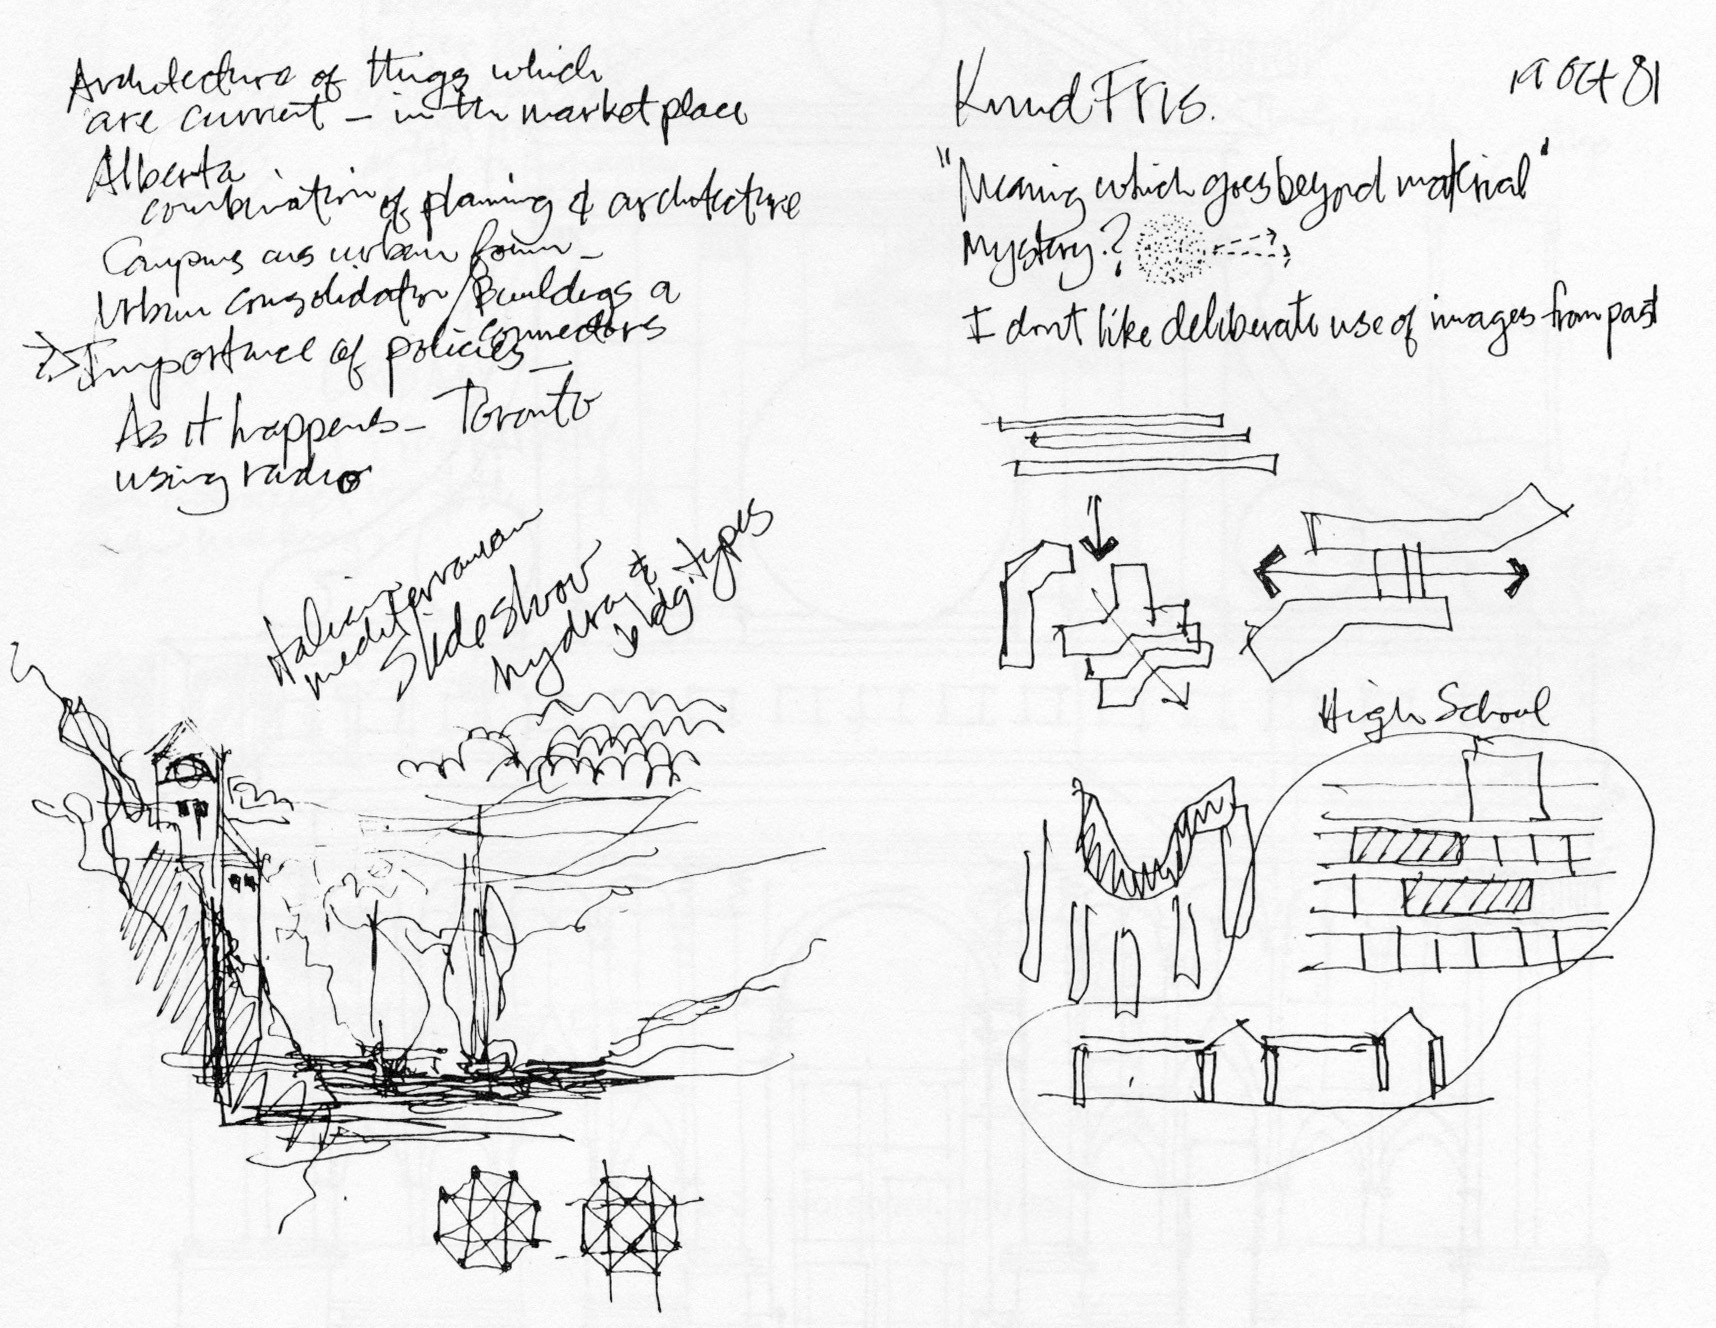 Architecture of things which
are current – in the market place
Alberta
combination of planning & architecture
Campus as urban form –
Urban consolidation / Buildings a
connectors
Importance of policies –
As it happens – Toronto
using radio
Italian
mediterranean
Slideshow
hydro &
bldg. types
Knud Friis.
19 Oct 81
"Meaning which goes beyond material"
Mystery?
I don't like deliberate use of images from past
High School